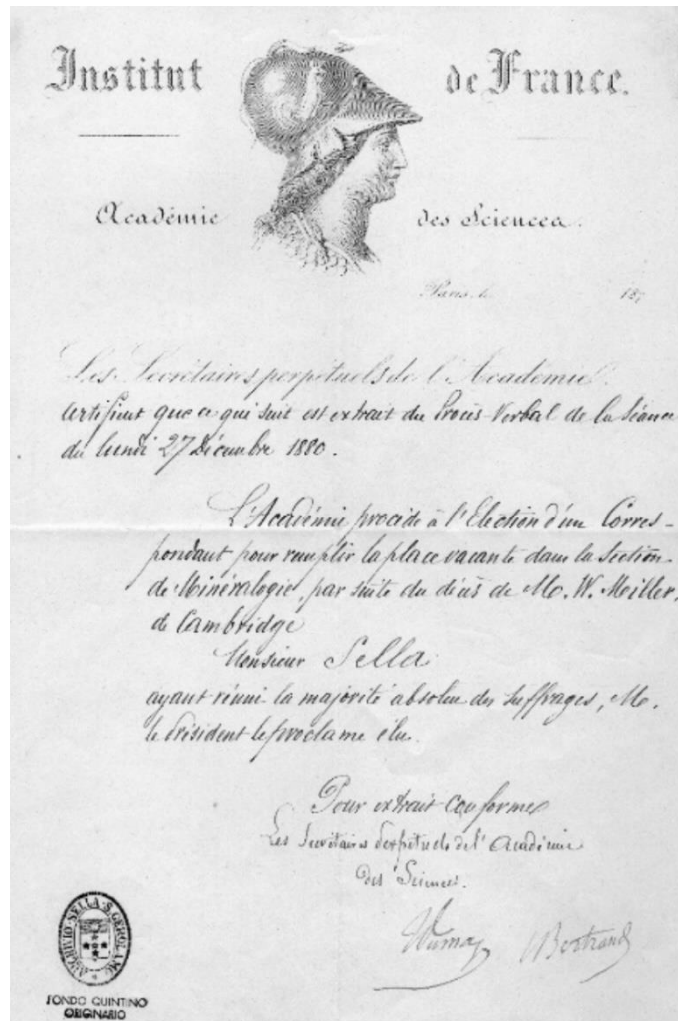 Institut de France.
Académie des Sciences.
Paris, le 187
Les Secrétaires perpétuels de l'Académie
certifient que ce qui suit est extrait du Procès-Verbal de la Séance
du lundi 27 Décembre 1880.
L'Académie procède à l'Election d'un Corres-
pondant pour remplir la place vacante dans la Section
de Minéralogie, par suite du décès de M. W. Miller,
de Cambridge
Monsieur Sella
ayant réuni la majorité absolue des suffrages, M.
le Président le proclame élu.
Pour extrait conforme
Les Secrétaires Perpétuels de l'Académie
des Sciences.
Dumas Bertrand
ARCHIVIO·SELLA·S.GEROLAMO
FONDO QUINTINO
ORIGINARIO